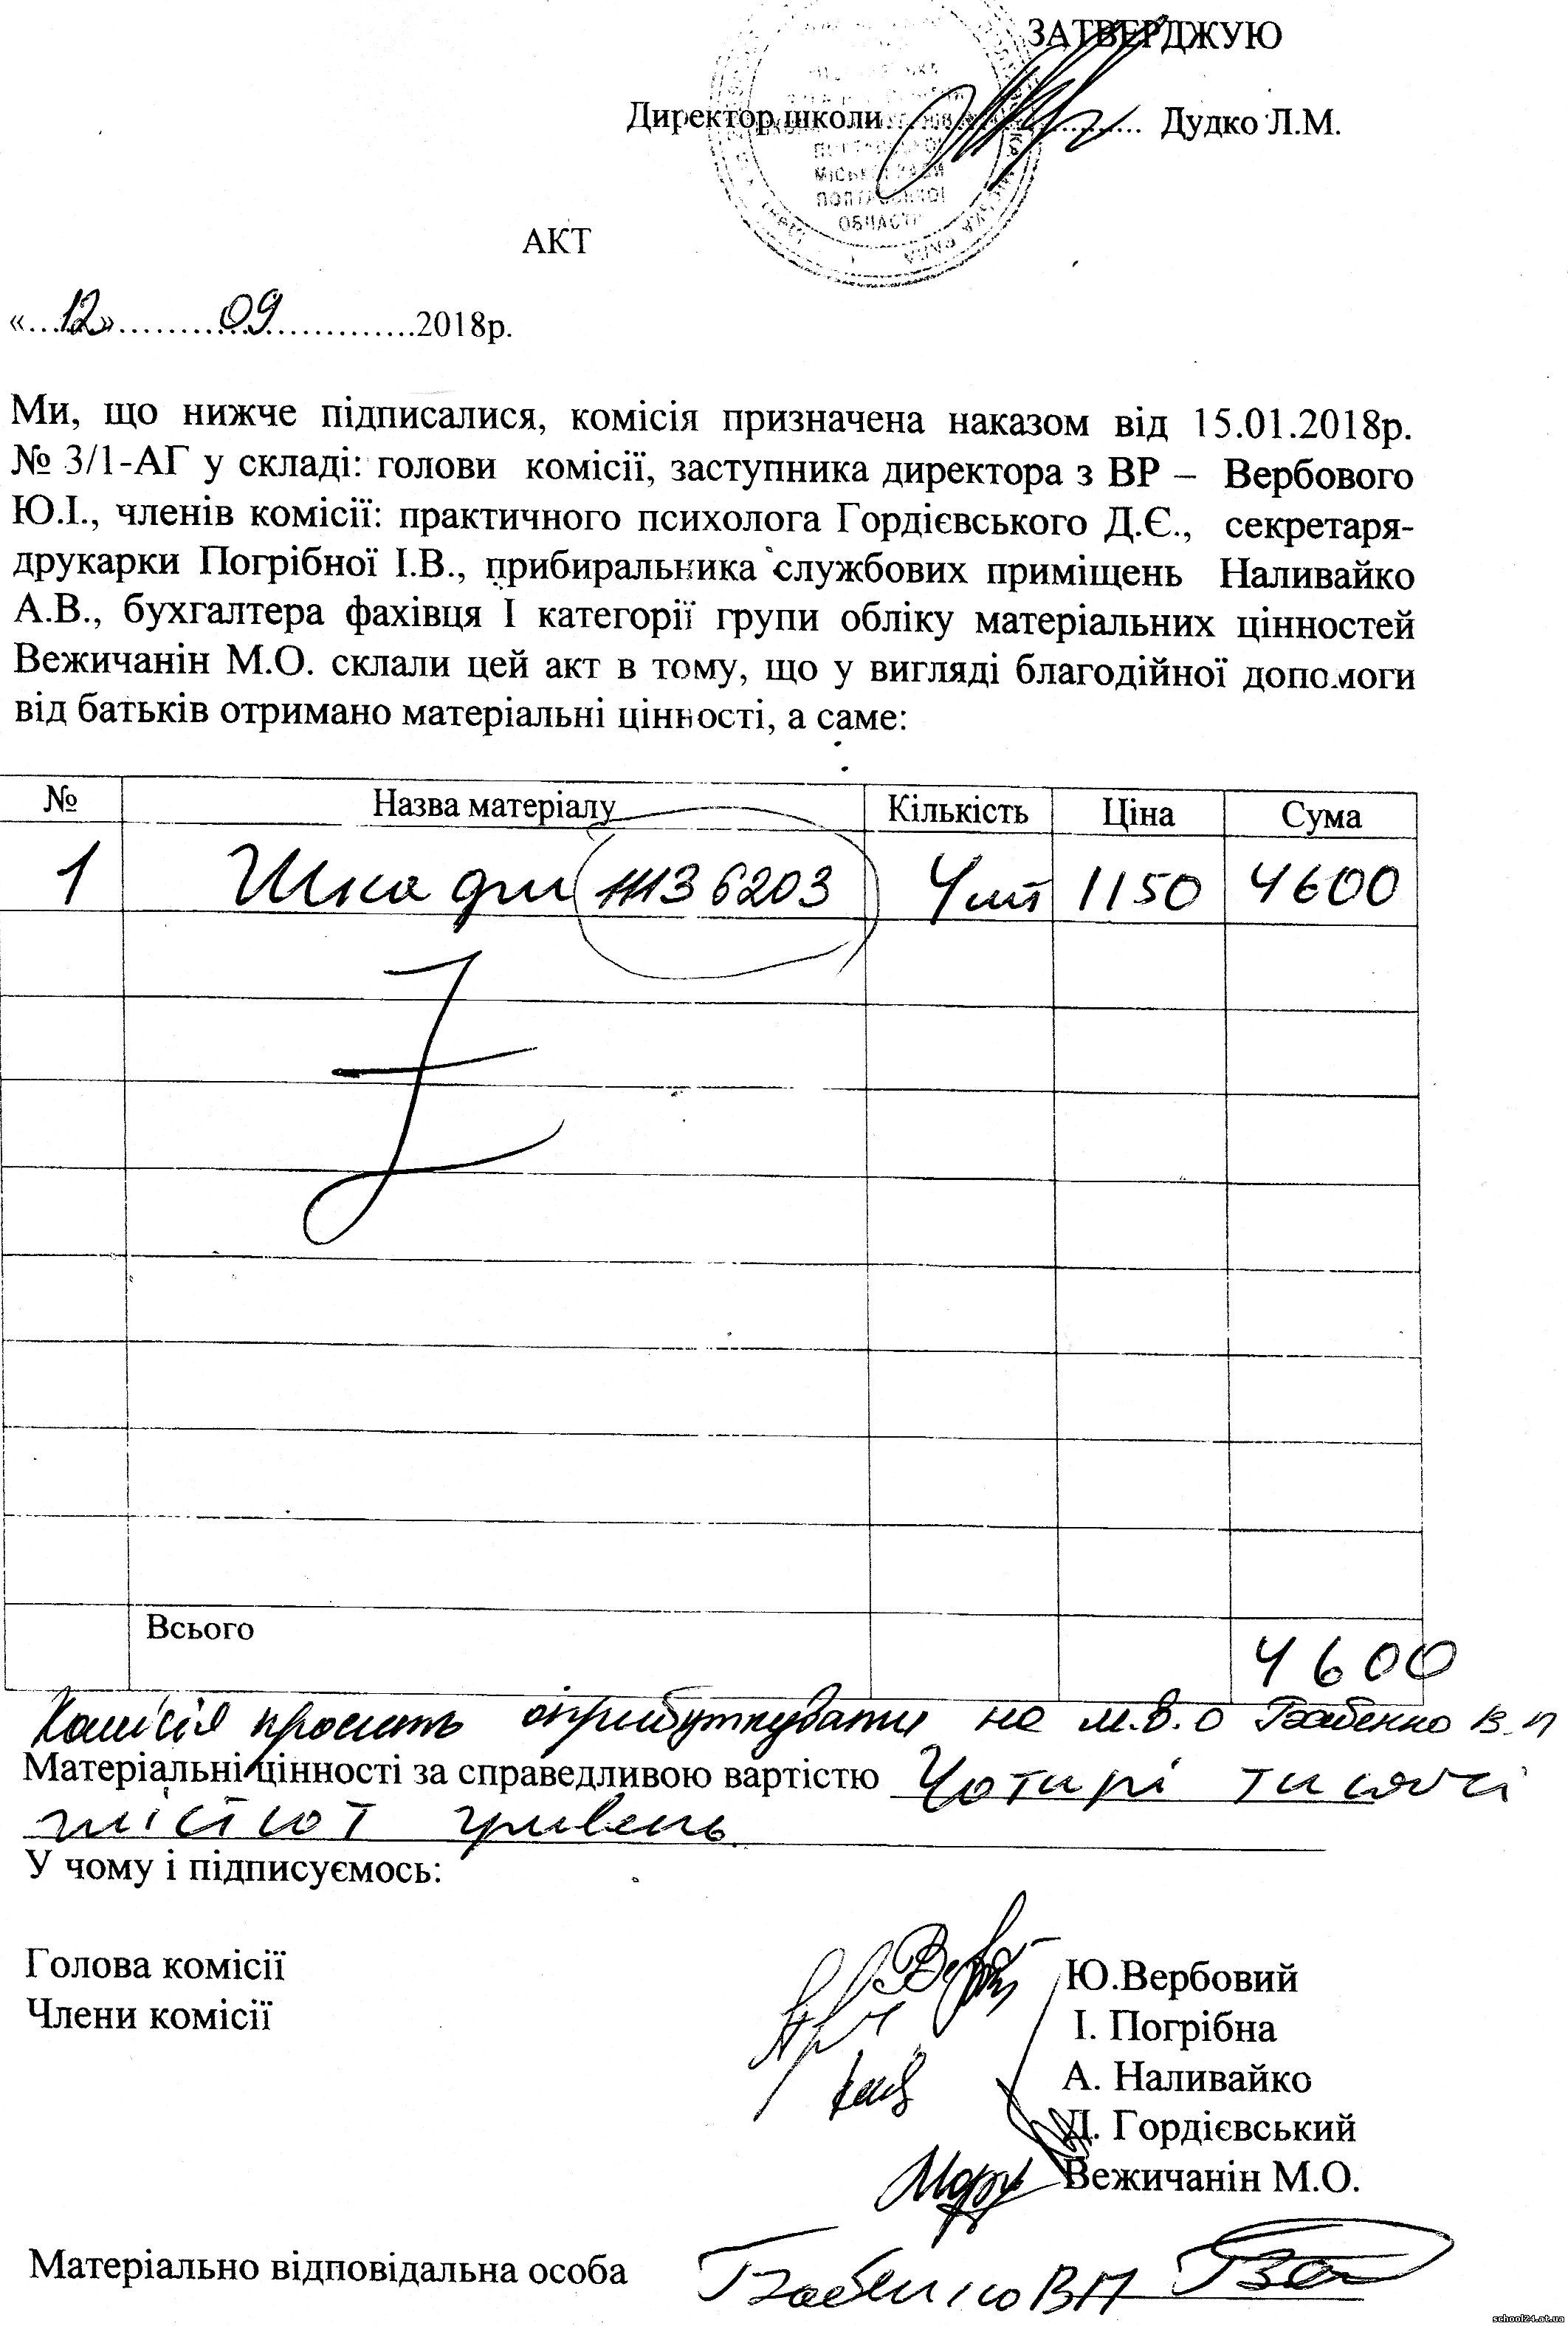 ЗАТВЕРДЖУЮ
Директор школи.................... Дудко Л.М.
МІСЬКОЇ РАДИ
ПОЛТАВСЬКОЇ
ОБЛАСТІ
АКТ
«....12»...........09..................2018р.
Ми, що нижче підписалися, комісія призначена наказом від 15.01.2018р.
№ 3/1-АГ у складі: голови комісії, заступника директора з ВР – Вербового
Ю.І., членів комісії: практичного психолога Гордієвського Д.Є., секретаря-
друкарки Погрібної І.В., прибиральника службових приміщень Наливайко
А.В., бухгалтера фахівця І категорії групи обліку матеріальних цінностей
Вежичанін М.О. склали цей акт в тому, що у вигляді благодійної допомоги
від батьків отримано матеріальні цінності, а саме:
№ Назва матеріалу Кількість Ціна Сума
1 Шкафи 11136203 4 шт 1150 4600
Всього 4600
Комісія просить оприбуткувати на м.в.о Бабенко В.П
Матеріальні цінності за справедливою вартістю Чотирі тисячі
шістсот гривень
У чому і підписуємось:
Голова комісії Ю.Вербовий
Члени комісії І. Погрібна
А. Наливайко
Д. Гордієвський
Вежичанін М.О.
Матеріально відповідальна особа Бабенко ВП
school24.at.ua